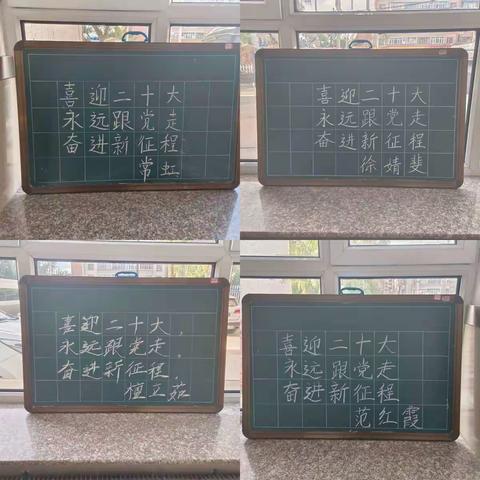 喜迎二十大
永远跟党走
奋进新征程
常虹
喜迎二十大
永远跟党走
奋进新征程
徐婧斐
喜迎二十大，
永远跟党走，
奋进新征程，
檀立茹
喜迎二十大
永远跟党走
奋进新征程
范红霞